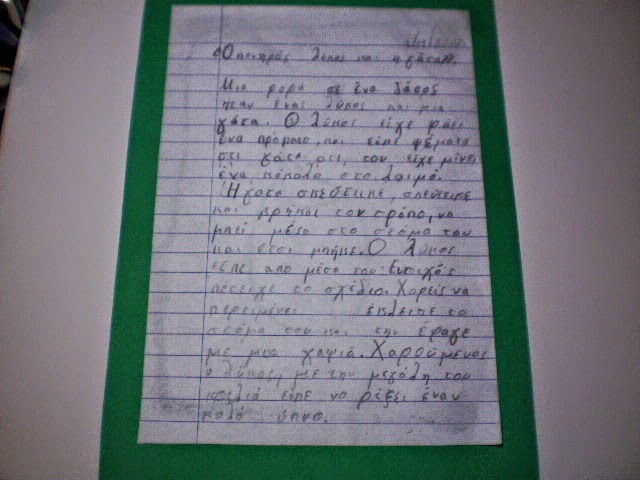 «Ο πονηρός λύκος και η γάτα».
Μια φορά σε ένα δάσος
ήταν ένας λύκος και μια
γάτα. Ο λύκος είχε φάει
ένα πρόβατο, και είπε ψέματα
στι γάτα ότι, του είχε μίνει
ένα κόκαλο στο λαιμό.
Η γάτα σκέφτικε,
και βρήκαι τον τρόπο, να
μπεί μέσα στο στόμα του
και έτσι μπήκε. Ο λύκος
είπε απο μέσα του: Ευτιχός
πέτειχε το σχέδιο. Χορείς να
περειμένει έκλεισε το
στόμα του και την έφαγε
με μια χαψιά. Χαρούμενος
ο λύκος, με την μεγάλη του
κοιλιά είπε να ρίξει έναν
καλό ύπνο.